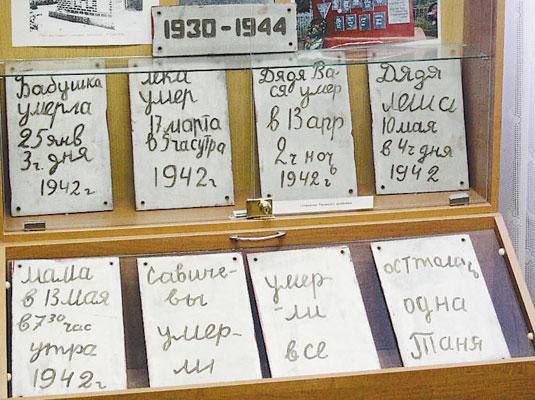 1930-1944
Бабушка
умерла
25 янв
3 ч. дня
1942 г
лека
умер
17 марта
в 5 час утра
1942 г
Дядя Ва-
ся умер
в 13 апр
2 ч ноч
1942 г
Дядя
леша
10 мая
в 4 ч дня
1942
мама
в 13 мая
в 7 30 час
утра
1942 г
Савиче-
вы
умер-
ли
умер-
-ли
все
осталась
одна
Таня